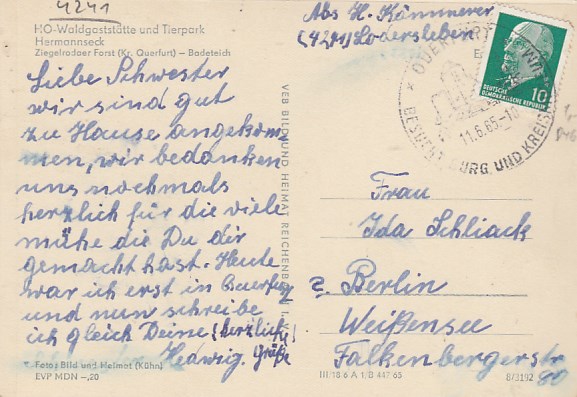 4241
HO-Waldgaststätte und Tierpark
Hermannseck
Ziegelrodaer Forst (Kr. Querfurt) – Badeteich
Liebe Schwester
wir sind gut
zu Hause angekom
men, wir bedanken
uns nochmals
herzlich für die viele
mühe die Du dir
gemacht hast. Heute
war ich erst in Querfurt
und nun schreibe
ich gleich Deine (herzliche
Hedwig. Grüße
Fotos Bild und Heimat (Kühn)
EVP MDN –,20
VEB BILD UND HEIMAT REICHENBACH I. V.
Abs H. Kämmerer
(4241) Lodersleben
DEUTSCHE
DEMOKRATISCHE REPUBLIK
10
QUERFURT
11.6.65-10
BESUCHT BURG UND KREIS
Frau
Ida Schliack
Berlin
Weißensee
Falkenbergerstr
80
III/18/6 A 1/B 447/65
8/3192